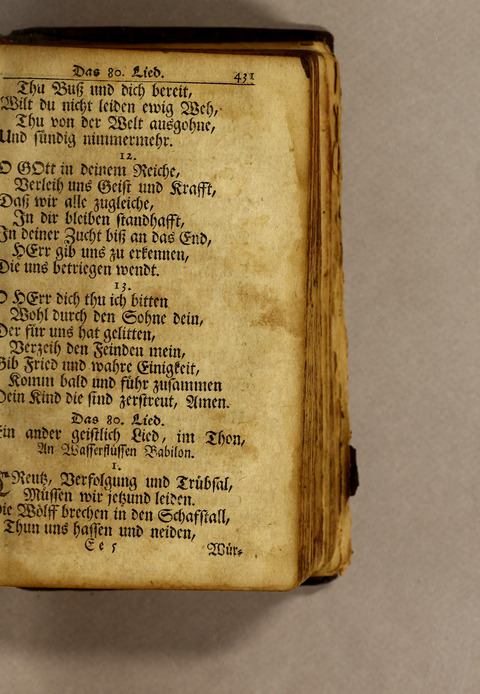 Das 80. Lied. 431
Thu Buß und dich bereit,
Wilt du nicht leiden ewig Weh,
Thu von der Welt ausgohne,
Und sündig nimmermehr.
12.
O GOtt in deinem Reiche,
Verleih uns Geist und Krafft,
Daß wir alle zugleiche,
In dir bleiben standhafft,
In deiner Zucht biß an das End,
HErr gib uns zu erkennen,
Die uns betriegen wendt.
13.
O HErr dich thu ich bitten
Wohl durch den Sohne dein,
Der für uns hat gelitten,
Verzeih den Feinden mein,
Gib Fried und wahre Einigkeit,
Komm bald und führ zusammen
Dein Kind die sind zerstreut, Amen.
Das 80. Lied.
Ein ander geistlich Lied, im Thon,
An Wasserflüssen Babilon.
1.
CReutz, Verfolgung und Trübsal,
Müssen wir jetzund leiden.
Die Wölff brechen in den Schafstall,
Thun uns hassen und neiden,
E e 5 Wür-